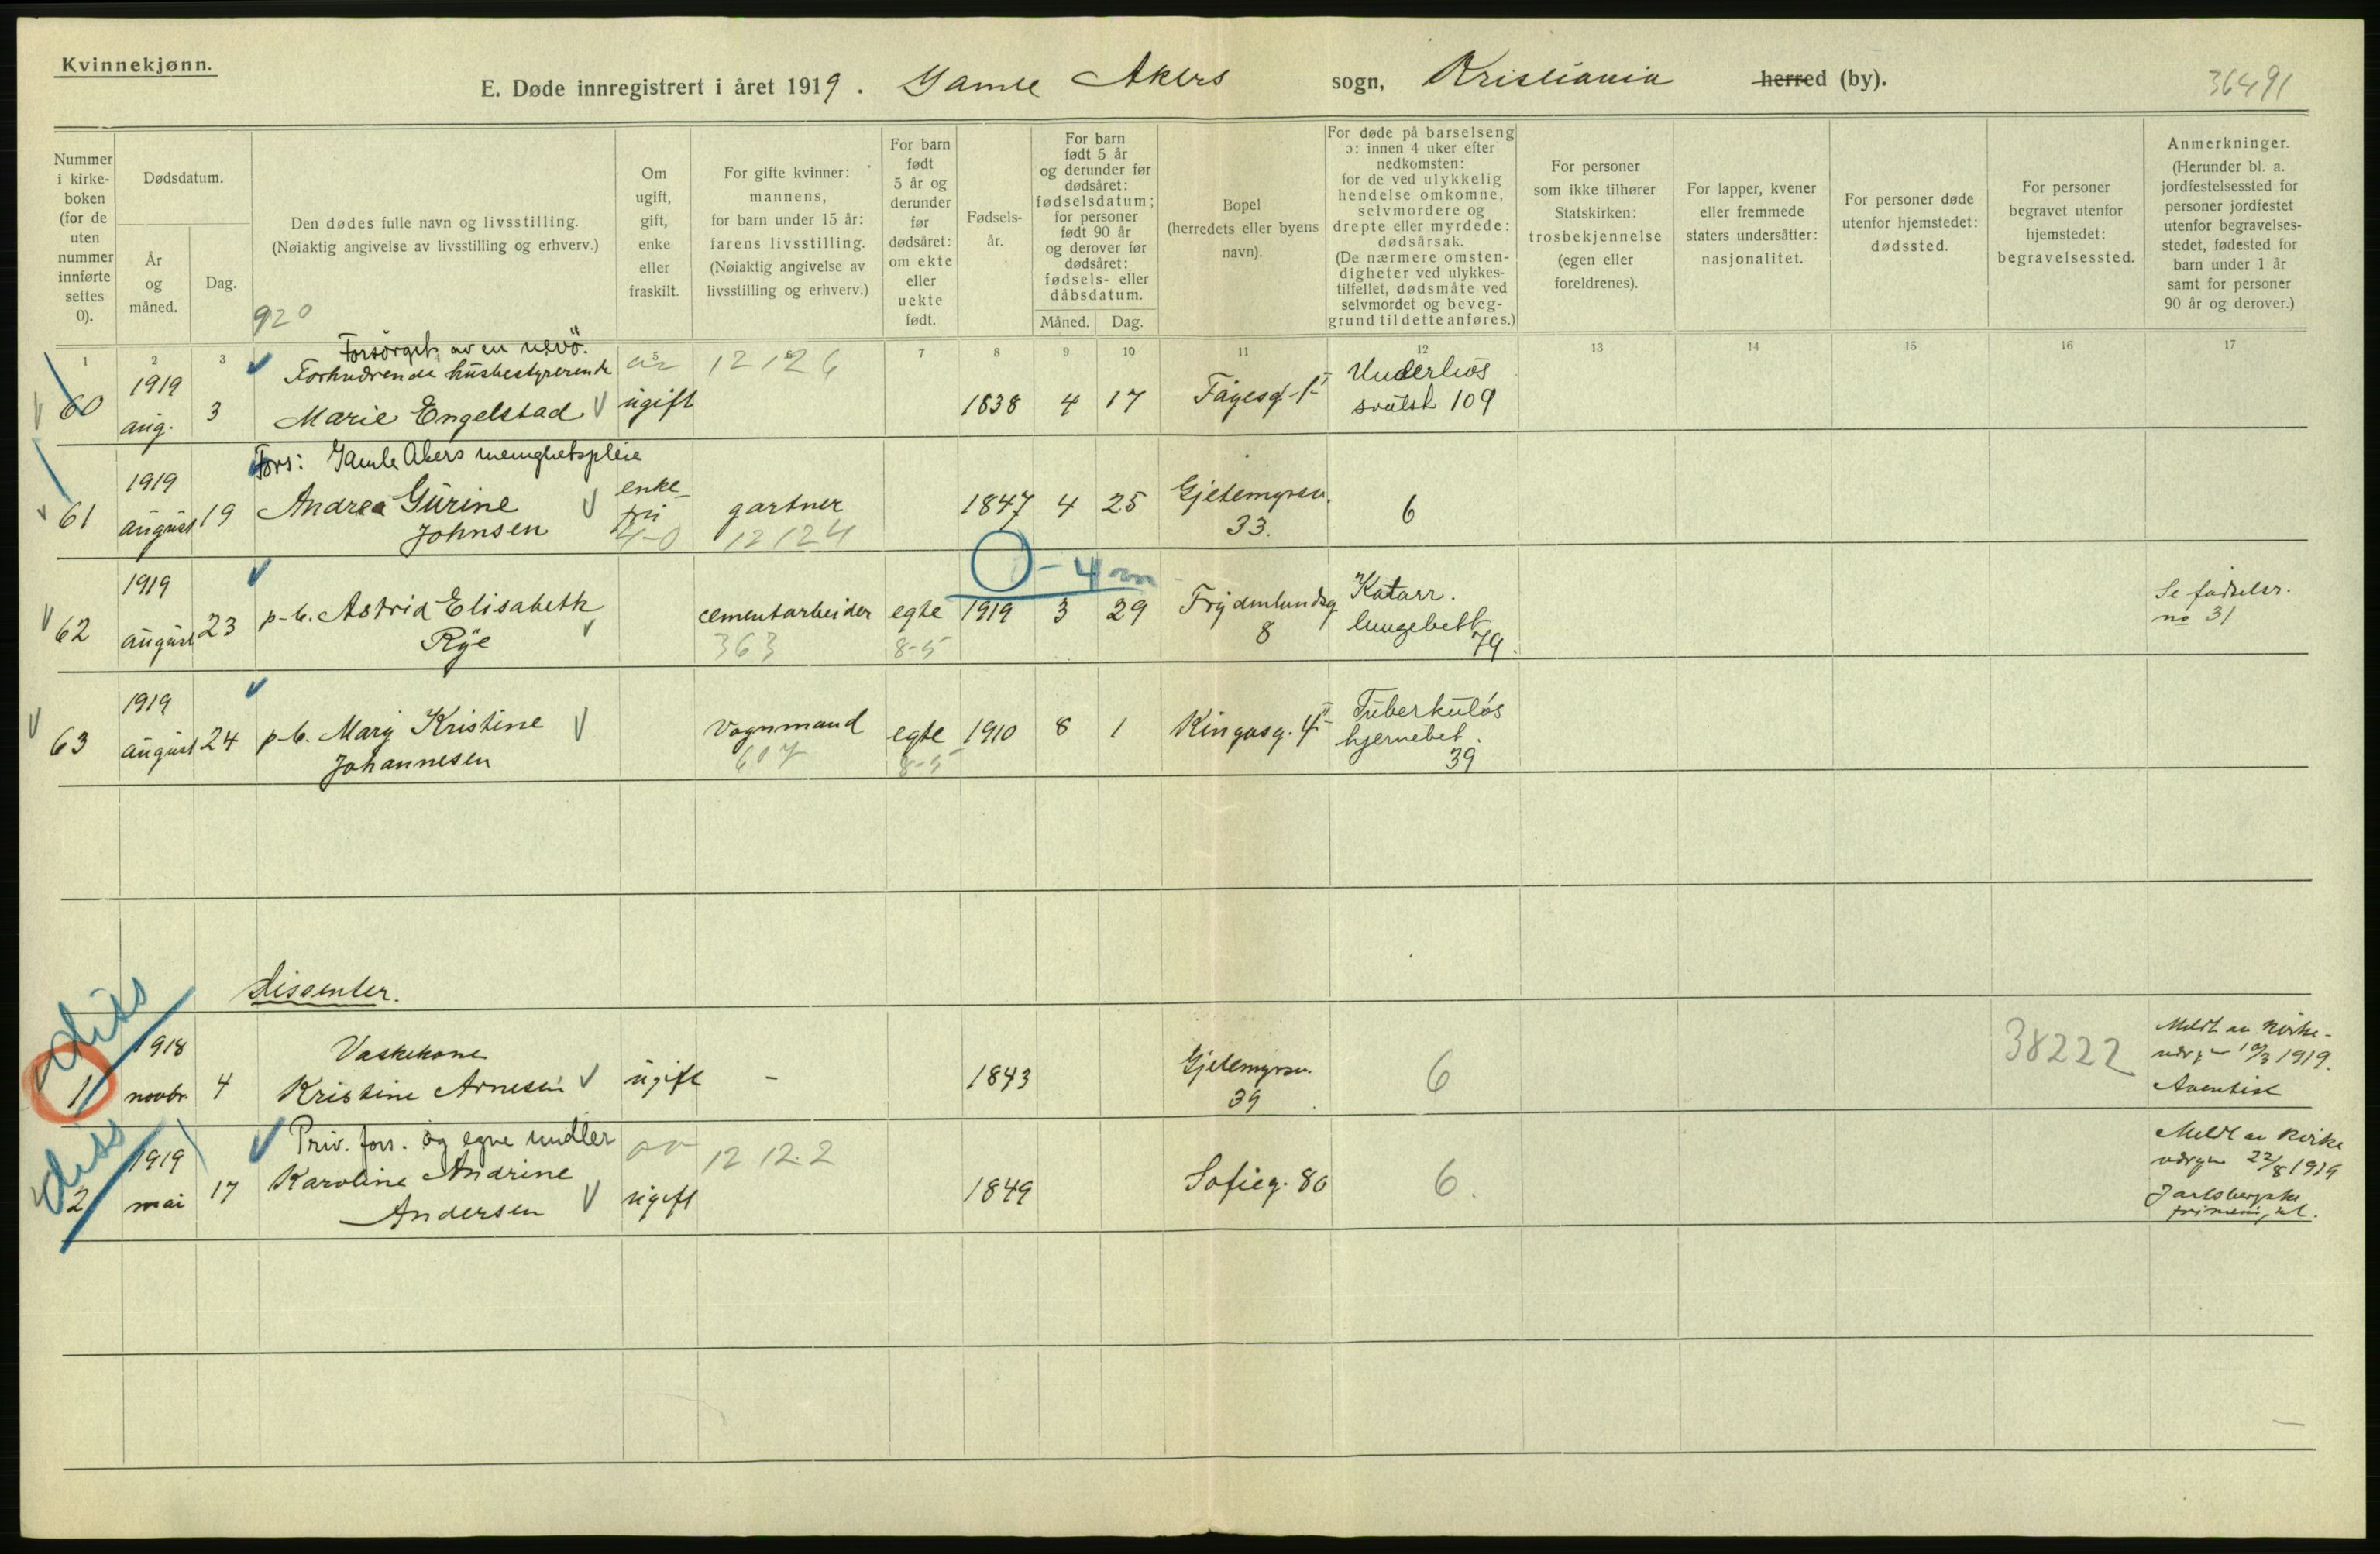 Kvinnekjønn.
E. Døde innregistrert i året 1919. Gamle Akers sogn, Kristiania herred (by).
36491
Nummer i kirkeboken (for de uten nummer innførte settes 0).
Dødsdatum.
År og måned.
Dag.
Den dødes fulle navn og livsstilling.
(Nøiaktig angivelse av livsstilling og erhverv.)
920
Om ugift, gift, enke eller fraskilt.
For gifte kvinner: mannens, for barn under 15 år: farens livsstilling. (Nøiaktig angivelse av livsstilling og erhverv.)
For barn født 5 år og derunder før dødsåret: om ekte eller uekte født.
Fødselsår.
For barn født 5 år og derunder før dødsåret: fødselsdatum; for personer født 90 år og derover før dødsåret: fødsels- eller dåbsdatum.
Måned. Dag.
Bopel (herredets eller byens navn).
For døde på barselseng ɔ: innen 4 uker efter nedkomsten: for de ved ulykkelig hendelse omkomne, selvmordere og drepte eller myrdede: dødsårsak. (De nærmere omstendigheter ved ulykkestilfellet, dødsmåte ved selvmordet og beveggrund til dette anføres.)
For personer som ikke tilhører Statskirken: trosbekjennelse (egen eller foreldrenes).
For lapper, kvener eller fremmede staters undersåtter: nasjonalitet.
For personer døde utenfor hjemstedet: dødssted.
For personer begravet utenfor hjemstedet: begravelsessted.
Anmerkninger. (Herunder bl. a. jordfestelsessted for personer jordfestet utenfor begravelsesstedet, fødested for barn under 1 år samt for personer 90 år og derover.)
1 2 3 5 7 8 9 10 11 12 13 14 15 16 17
Forsörget av en nevö.
60 1919 aug. 3 Forhværende husbestyrerende Marie Engelstad ugift 12126 1838 4 17 Underlivs svulst 109
Fors: Gamle Akers menighetspleie
61 1919 august 19 Andrea Gurine Johnsen enkefru 4-0 gartner 12124 1847 4 25 Gjetemyrsv. 33. 6
0 - 4 m
62 1919 august 23 p-b. Astrid Elisabeth Rye cementarbeider 363 egte 8-5 1919 3 29 Frydenlundsg 8 Katarr. lungebet 79. Se fødselsr. no 31
63 1919 august 24 p-b. Mary Kristine Johannesen Vognmand 607 egte 8-5 1910 8 1 Kingosg. 4 II Tuberkuløs hjernebet. 39
Dissenter.
diss
1 1918 novbr. 4 Vaskekone Kristine Arnesen ugift - 1843 Gjetemyrsv. 39 6 38222 Meldt av Kirkevergen 10/3 1919. Aventist
diss
2 1919 mai 17 Priv. fors. og egne midler Karoline Andrine Andersen ugift 12 12.2 1849 Sofieg. 80 6. Meldt av Kirkevergen 22/8 1919 Jarlsbergske frimenighet.